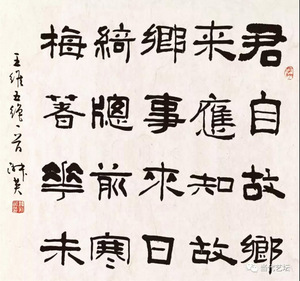 君自故鄉
来應知故
鄉事来日
綺牕前寒
梅著華未
王維五絕一首